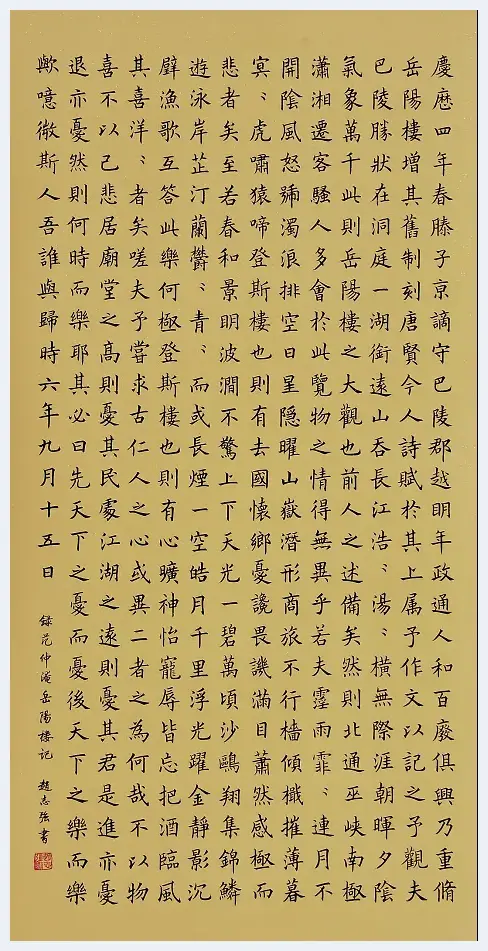 慶曆四年春滕子京謫守巴陵郡越明年政通人和百廢俱興乃重脩
岳陽樓增其舊制刻唐賢今人詩賦於其上属予作文以記之予觀夫
巴陵勝狀在洞庭一湖銜遠山吞長江浩〻湯〻橫無際涯朝暉夕陰
氣象萬千此則岳陽樓之大觀也前人之述備矣然則北通巫峽南極
瀟湘遷客騷人多會於此覽物之情得無異乎若夫霪雨霏〻連月不
開陰風怒號濁浪排空日星隐曜山嶽潛形商旅不行檣傾檝摧薄暮
冥〻虎嘯猿啼登斯樓也則有去國懷鄉憂讒畏譏滿目蕭然感極而
悲者矣至若春和景明波澗不驚上下天光一碧萬頃沙鷗翔集錦鱗
遊泳岸芷汀蘭欝〻青〻而或長煙一空皓月千里浮光躍金靜影沉
璧漁歌互答此樂何極登斯樓也則有心曠神怡寵辱皆忘把酒臨風
其喜洋〻者矣嗟夫予嘗求古仁人之心或異二者之為何哉不以物
喜不以己悲居廟堂之高則憂其民處江湖之遠則憂其君是進亦憂
退亦憂然則何時而樂耶其必曰先天下之憂而憂後天下之樂而樂
歟噫微斯人吾誰與歸時六年九月十五日
録范仲淹岳陽樓記 趙志強書